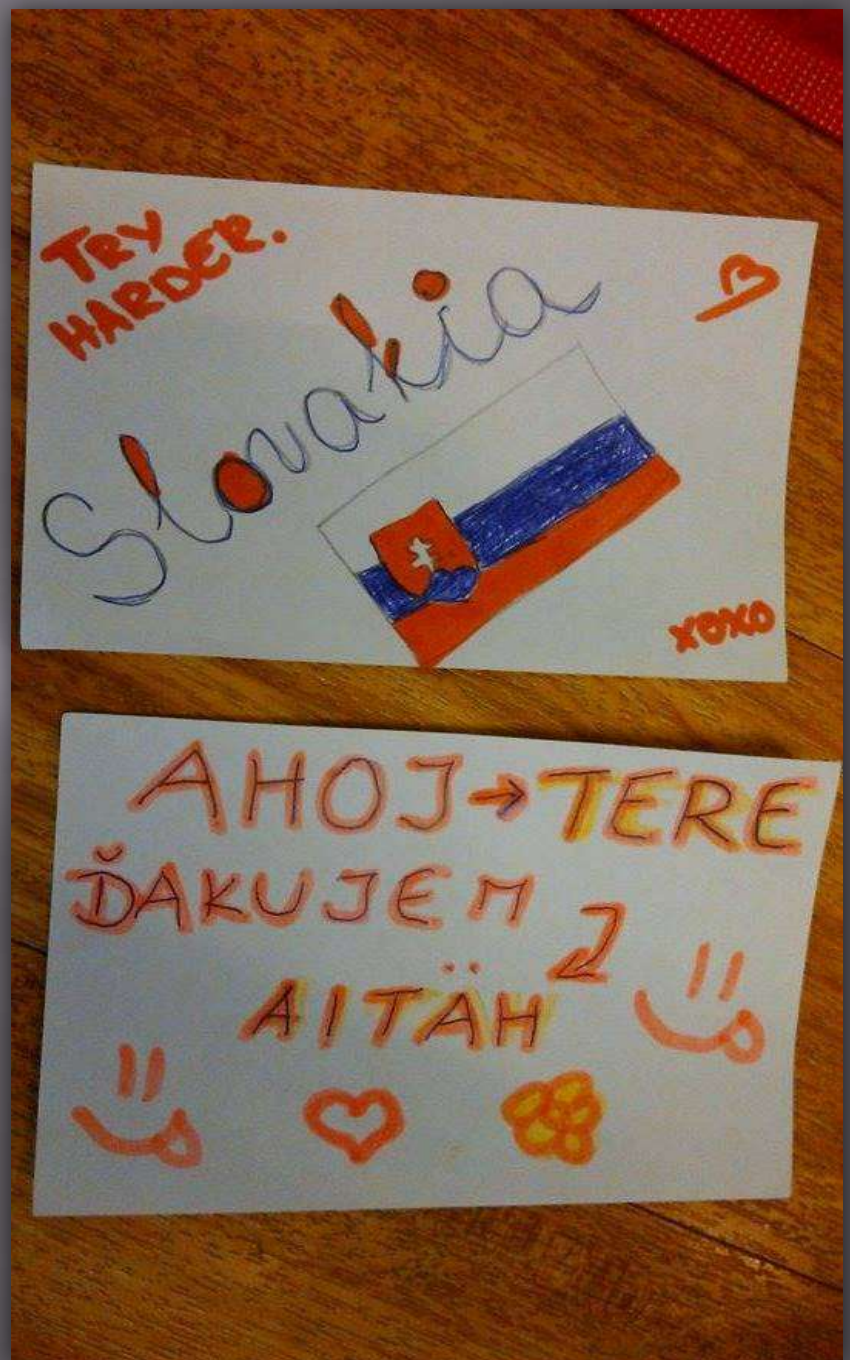 TRY
HARDER.
Slovakia
xoxo
AHOJ → TERE
ĎAKUJEM
AITÄH